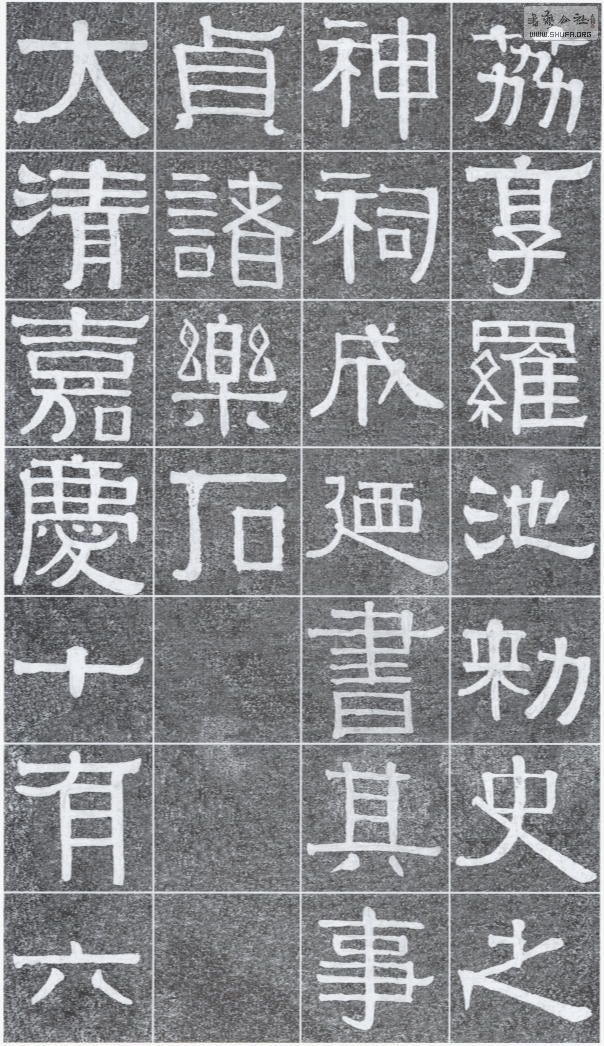 荔享羅池刺史之
神祠成廼書其事
貞諸樂石
大清嘉慶十有六
WWW.SHUFA.ORG